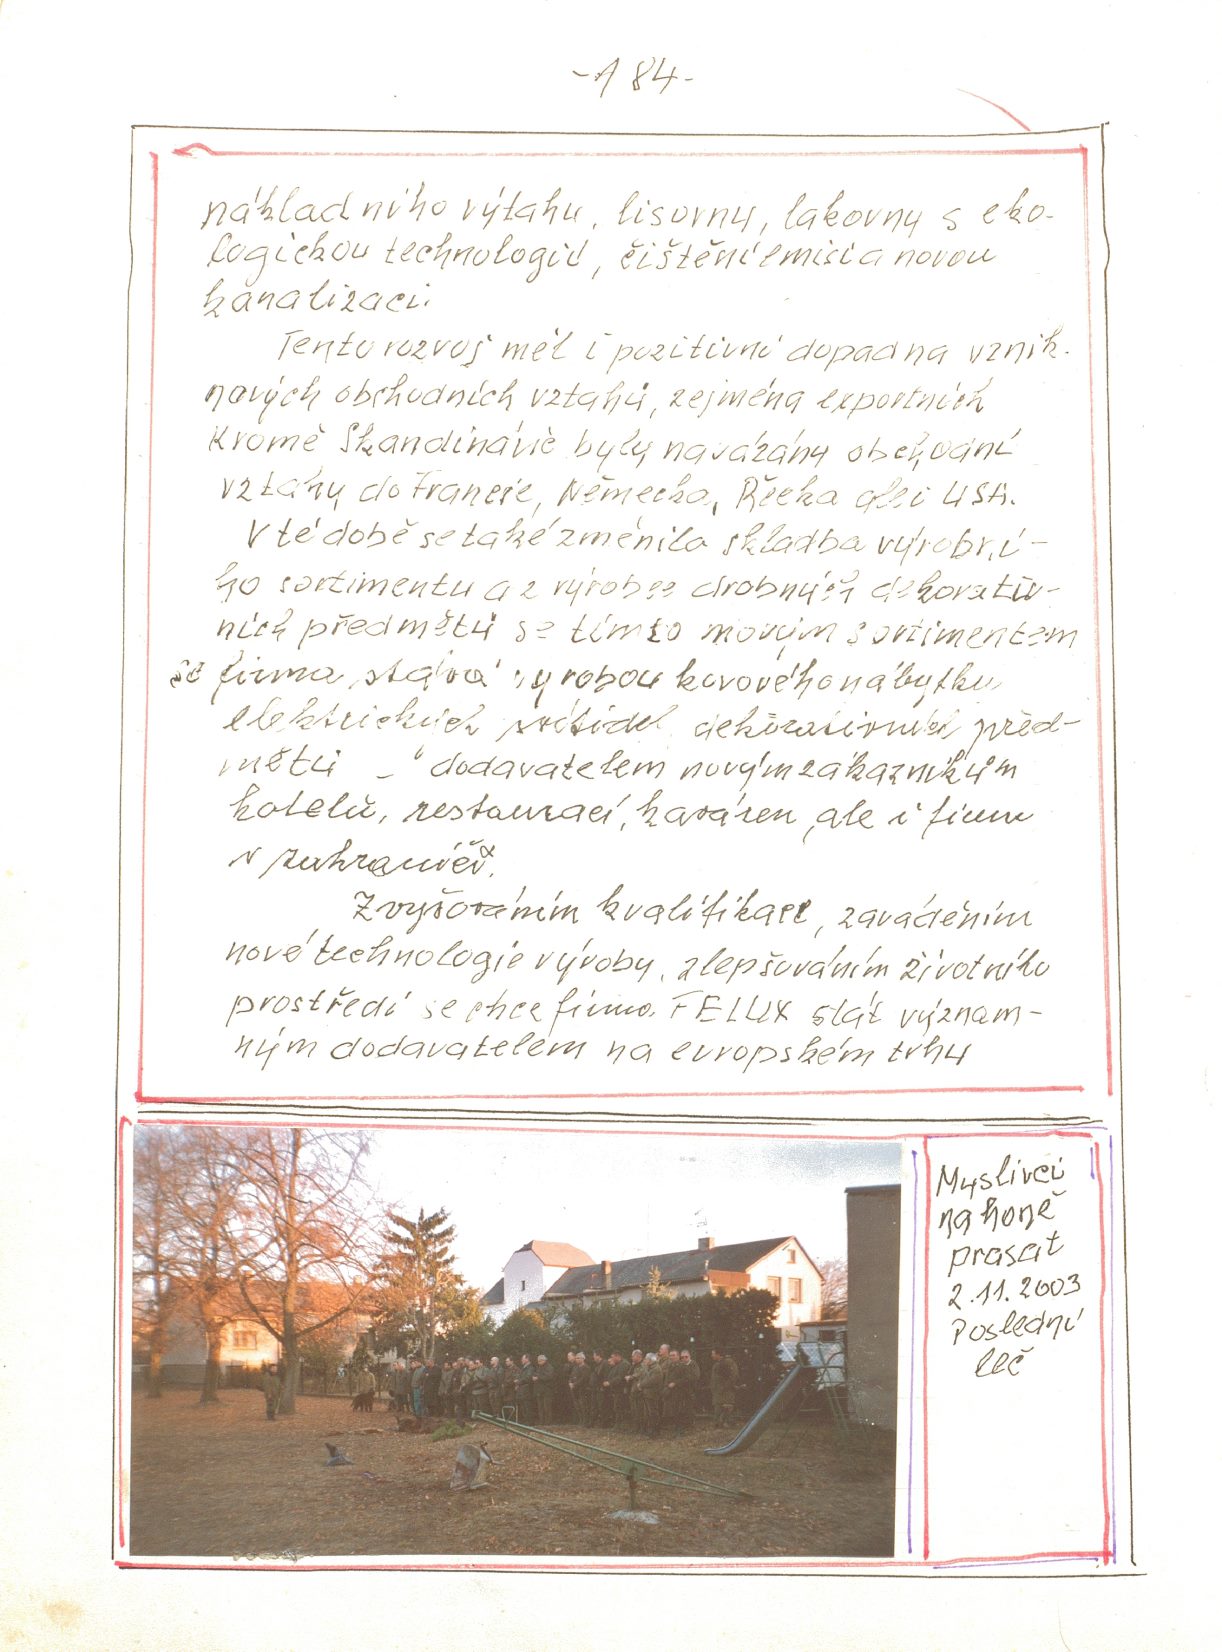 -184-
nákladního výtahu, lisovny, lakovny s eko-
logickou technologií, čištění emisí a novou
kanalizaci.
Tento rozvoj měl i pozitivní dopad na vznik.
nových obchodních vztahů, zejména exportních
Kromě Skandinávie byly navázány obchodní
vztahy do Francie, Německa, Řecka ale i USA.
V té době se také změnila skladba výrobní-
ho sortimentu a z výrobce drobných dekorativ-
ních předmětů se tímto novým sortimentem
se firma stává výrobou kovového nábytku
elektrických svítidel dekorativních před-
mětů - dodavatelem novým zákazníkům
hotelů, restaurací, kaváren, ale i firem
v zahraničí.
Zvyšováním kvalifikace, zaváděním
nové technologie výroby, zlepšováním životního
prostředí se chce firma FELUX stát význam-
ným dodavatelem na evropském trhu
Myslivci
na honě
prasat
2.11.2003
Poslední
leč